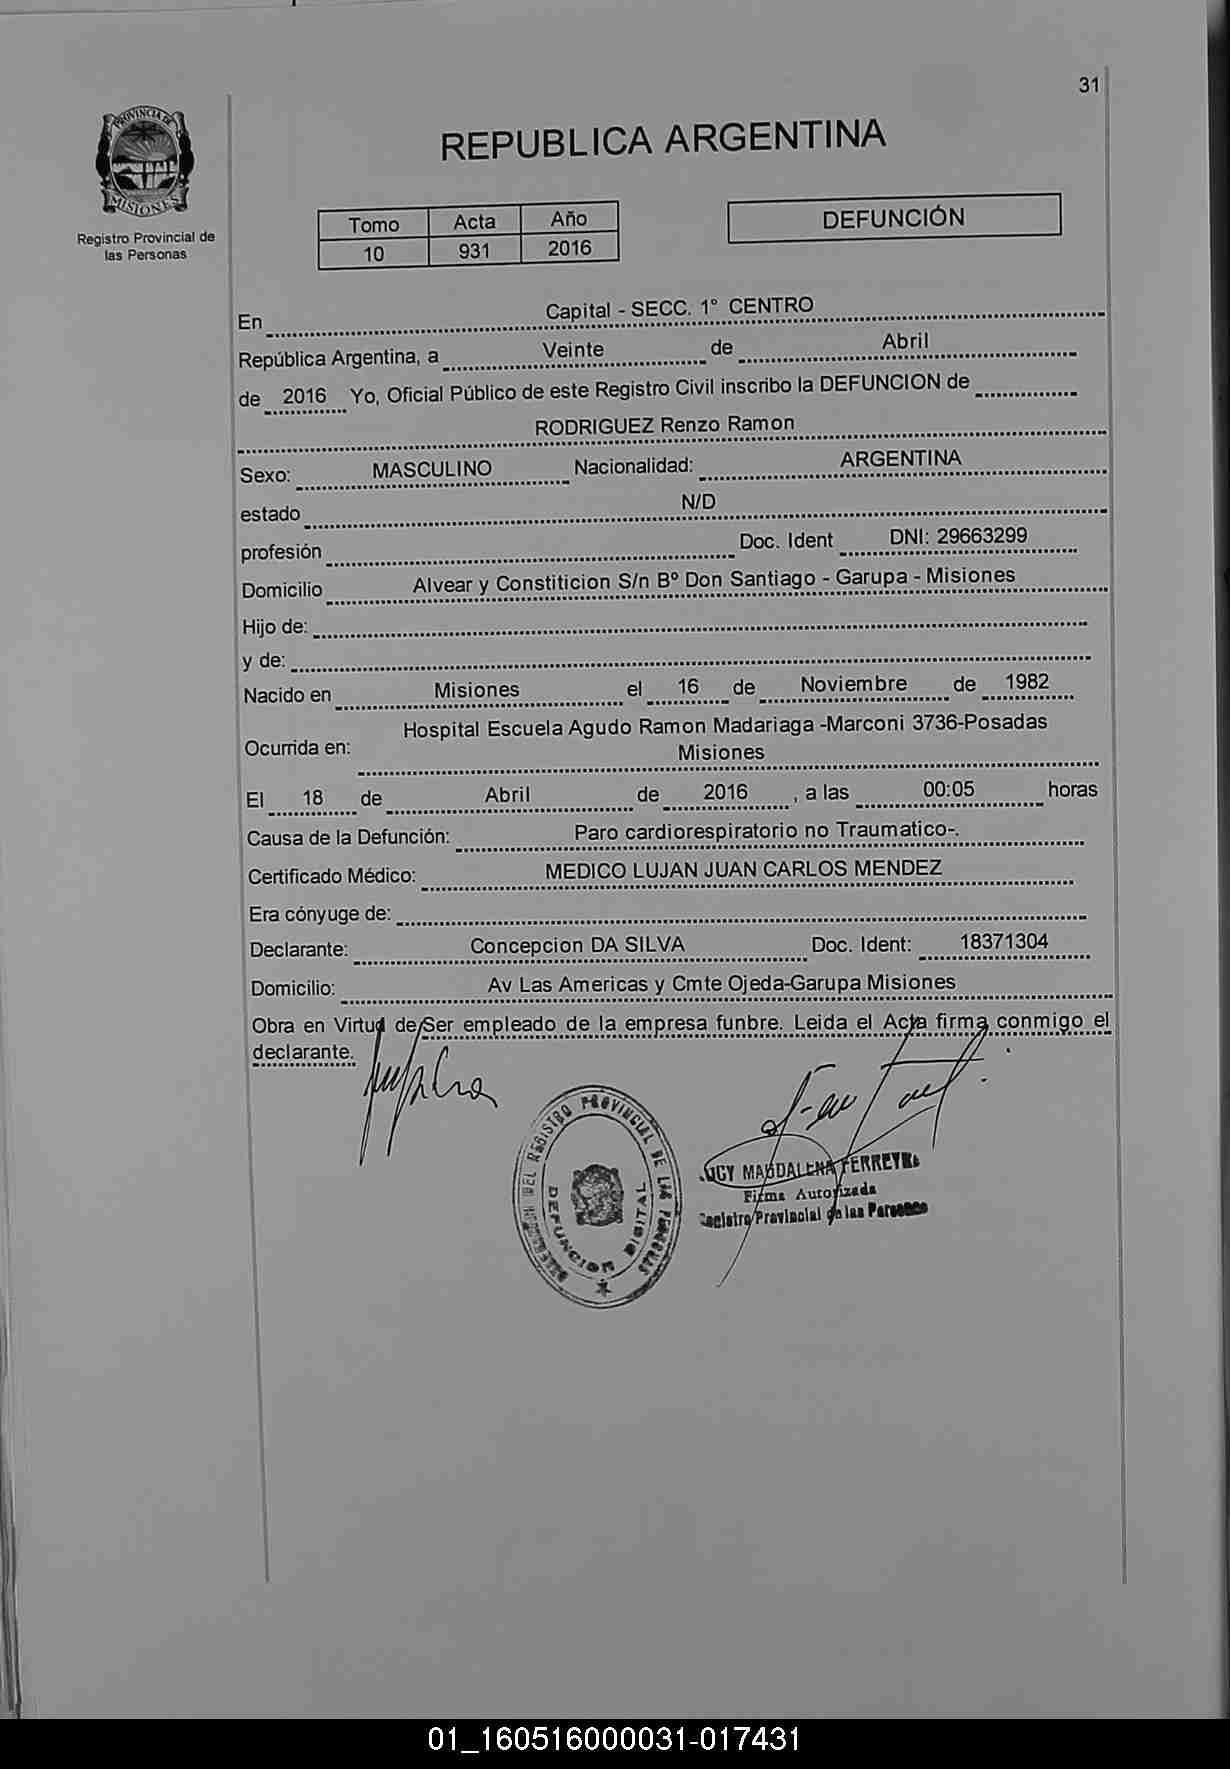 31
PROVINCIA DE
MISIONES
Registro Provincial de
las Personas
REPUBLICA ARGENTINA
Tomo Acta Año
10 931 2016
DEFUNCIÓN
En Capital - SECC. 1° CENTRO
República Argentina, a Veinte de Abril
de 2016 Yo, Oficial Público de este Registro Civil inscribo la DEFUNCION de
RODRIGUEZ Renzo Ramon
Sexo: MASCULINO Nacionalidad: ARGENTINA
estado N/D
profesión Doc. Ident DNI: 29663299
Domicilio Alvear y Constiticion S/n Bº Don Santiago - Garupa - Misiones
Hijo de:
y de:
Nacido en Misiones el 16 de Noviembre de 1982
Ocurrida en: Hospital Escuela Agudo Ramon Madariaga -Marconi 3736-Posadas
Misiones
El 18 de Abril de 2016 , a las 00:05 horas
Causa de la Defunción: Paro cardiorespiratorio no Traumatico-.
Certificado Médico: MEDICO LUJAN JUAN CARLOS MENDEZ
Era cónyuge de:
Declarante: Concepcion DA SILVA Doc. Ident: 18371304
Domicilio: Av Las Americas y Cmte Ojeda-Garupa Misiones
Obra en Virtud de Ser empleado de la empresa funbre. Leida el Acta firma conmigo el
declarante.
DEL REGISTRO PROVINCIAL DE LAS PERSONAS
DEFUNCION DIGITAL
MAGDALENA FERREYRA
Firma Autorizada
Registro Provincial de las Personas
01_160516000031-017431